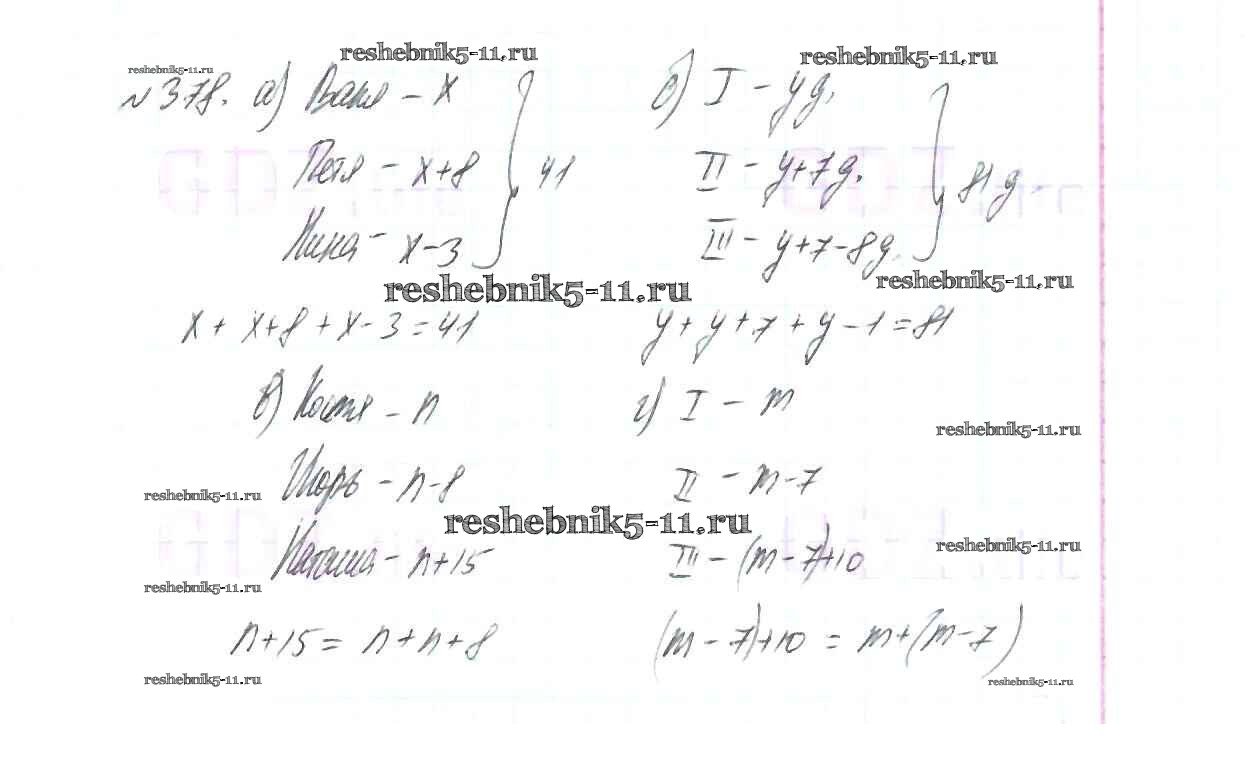 reshebnik5-11.ru
reshebnik5-11.ru
reshebnik5-11.ru
№ 378. а) Ваня - x
Петя - x+8
Нина - x-3
41
б) I - y д.
II - y+7 д.
III - y+7-8 д.
81 д
reshebnik5-11.ru
reshebnik5-11.ru
x + x+8 + x-3 = 41
y + y + 7 + y - 1 = 81
в) Костя - n
Игорь - n-8
Наташа - n+15
г) I - m
II - m-7
III - (m-7)+10
reshebnik5-11.ru
reshebnik5-11.ru
reshebnik5-11.ru
reshebnik5-11.ru
reshebnik5-11.ru
n+15 = n+n+8
(m-7)+10 = m+(m-7)
reshebnik5-11.ru
reshebnik5-11.ru